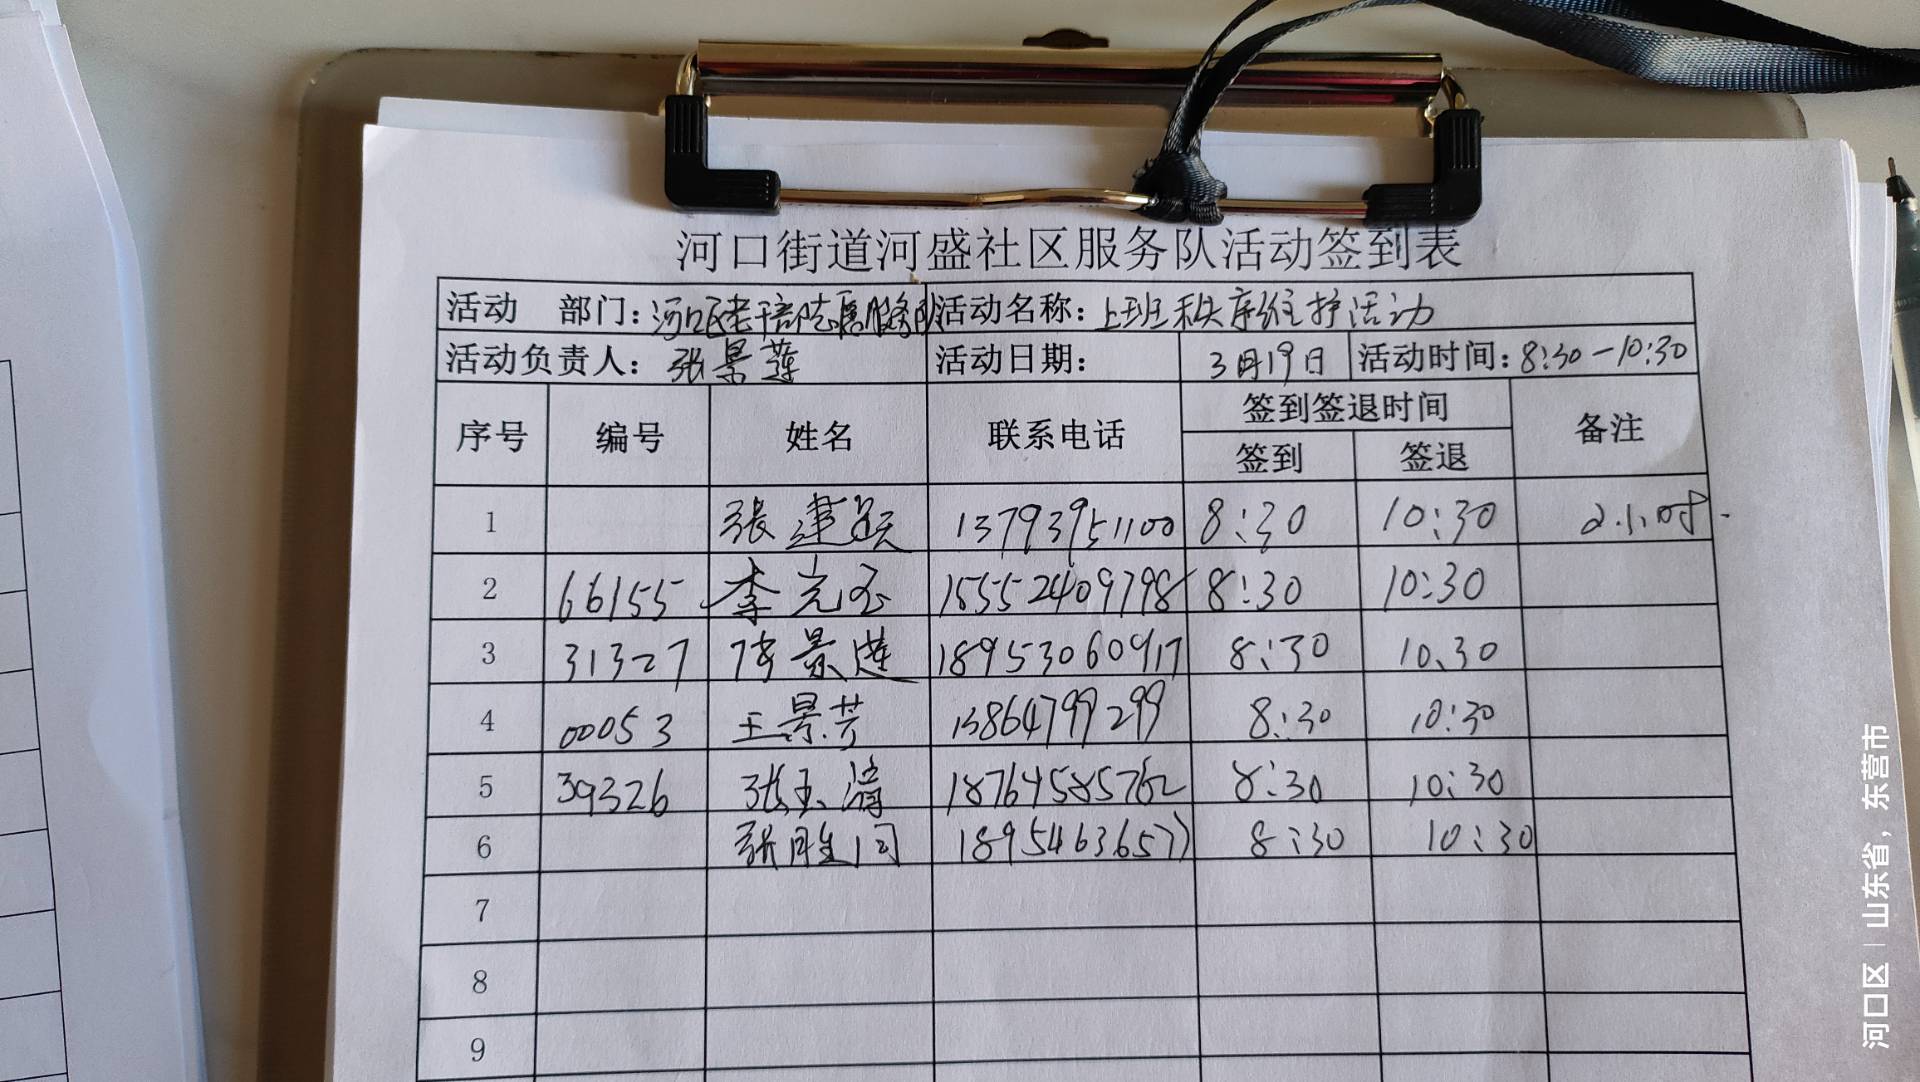 河口街道河盛社区服务队活动签到表
活动 部门：河口区老干部志愿服务队 活动名称：上班秩序维护活动
活动负责人：张景莲 活动日期： 3月19日 活动时间：8:30-10:30
序号 编号 姓名 联系电话 签到签退时间 备注
签到 签退
1 张建跃 13793951100 8:30 10:30 2小时
2 66155 李光玉 15552409798 8:30 10:30
3 31327 张景莲 18953060917 8:30 10.30
4 00053 王景芳 13864799299 8:30 10:30
5 39326 张玉清 18764585762 8:30 10:30
6 张胜利 18954636577 8:30 10:30
7
8
9
河口区 | 山东省，东营市